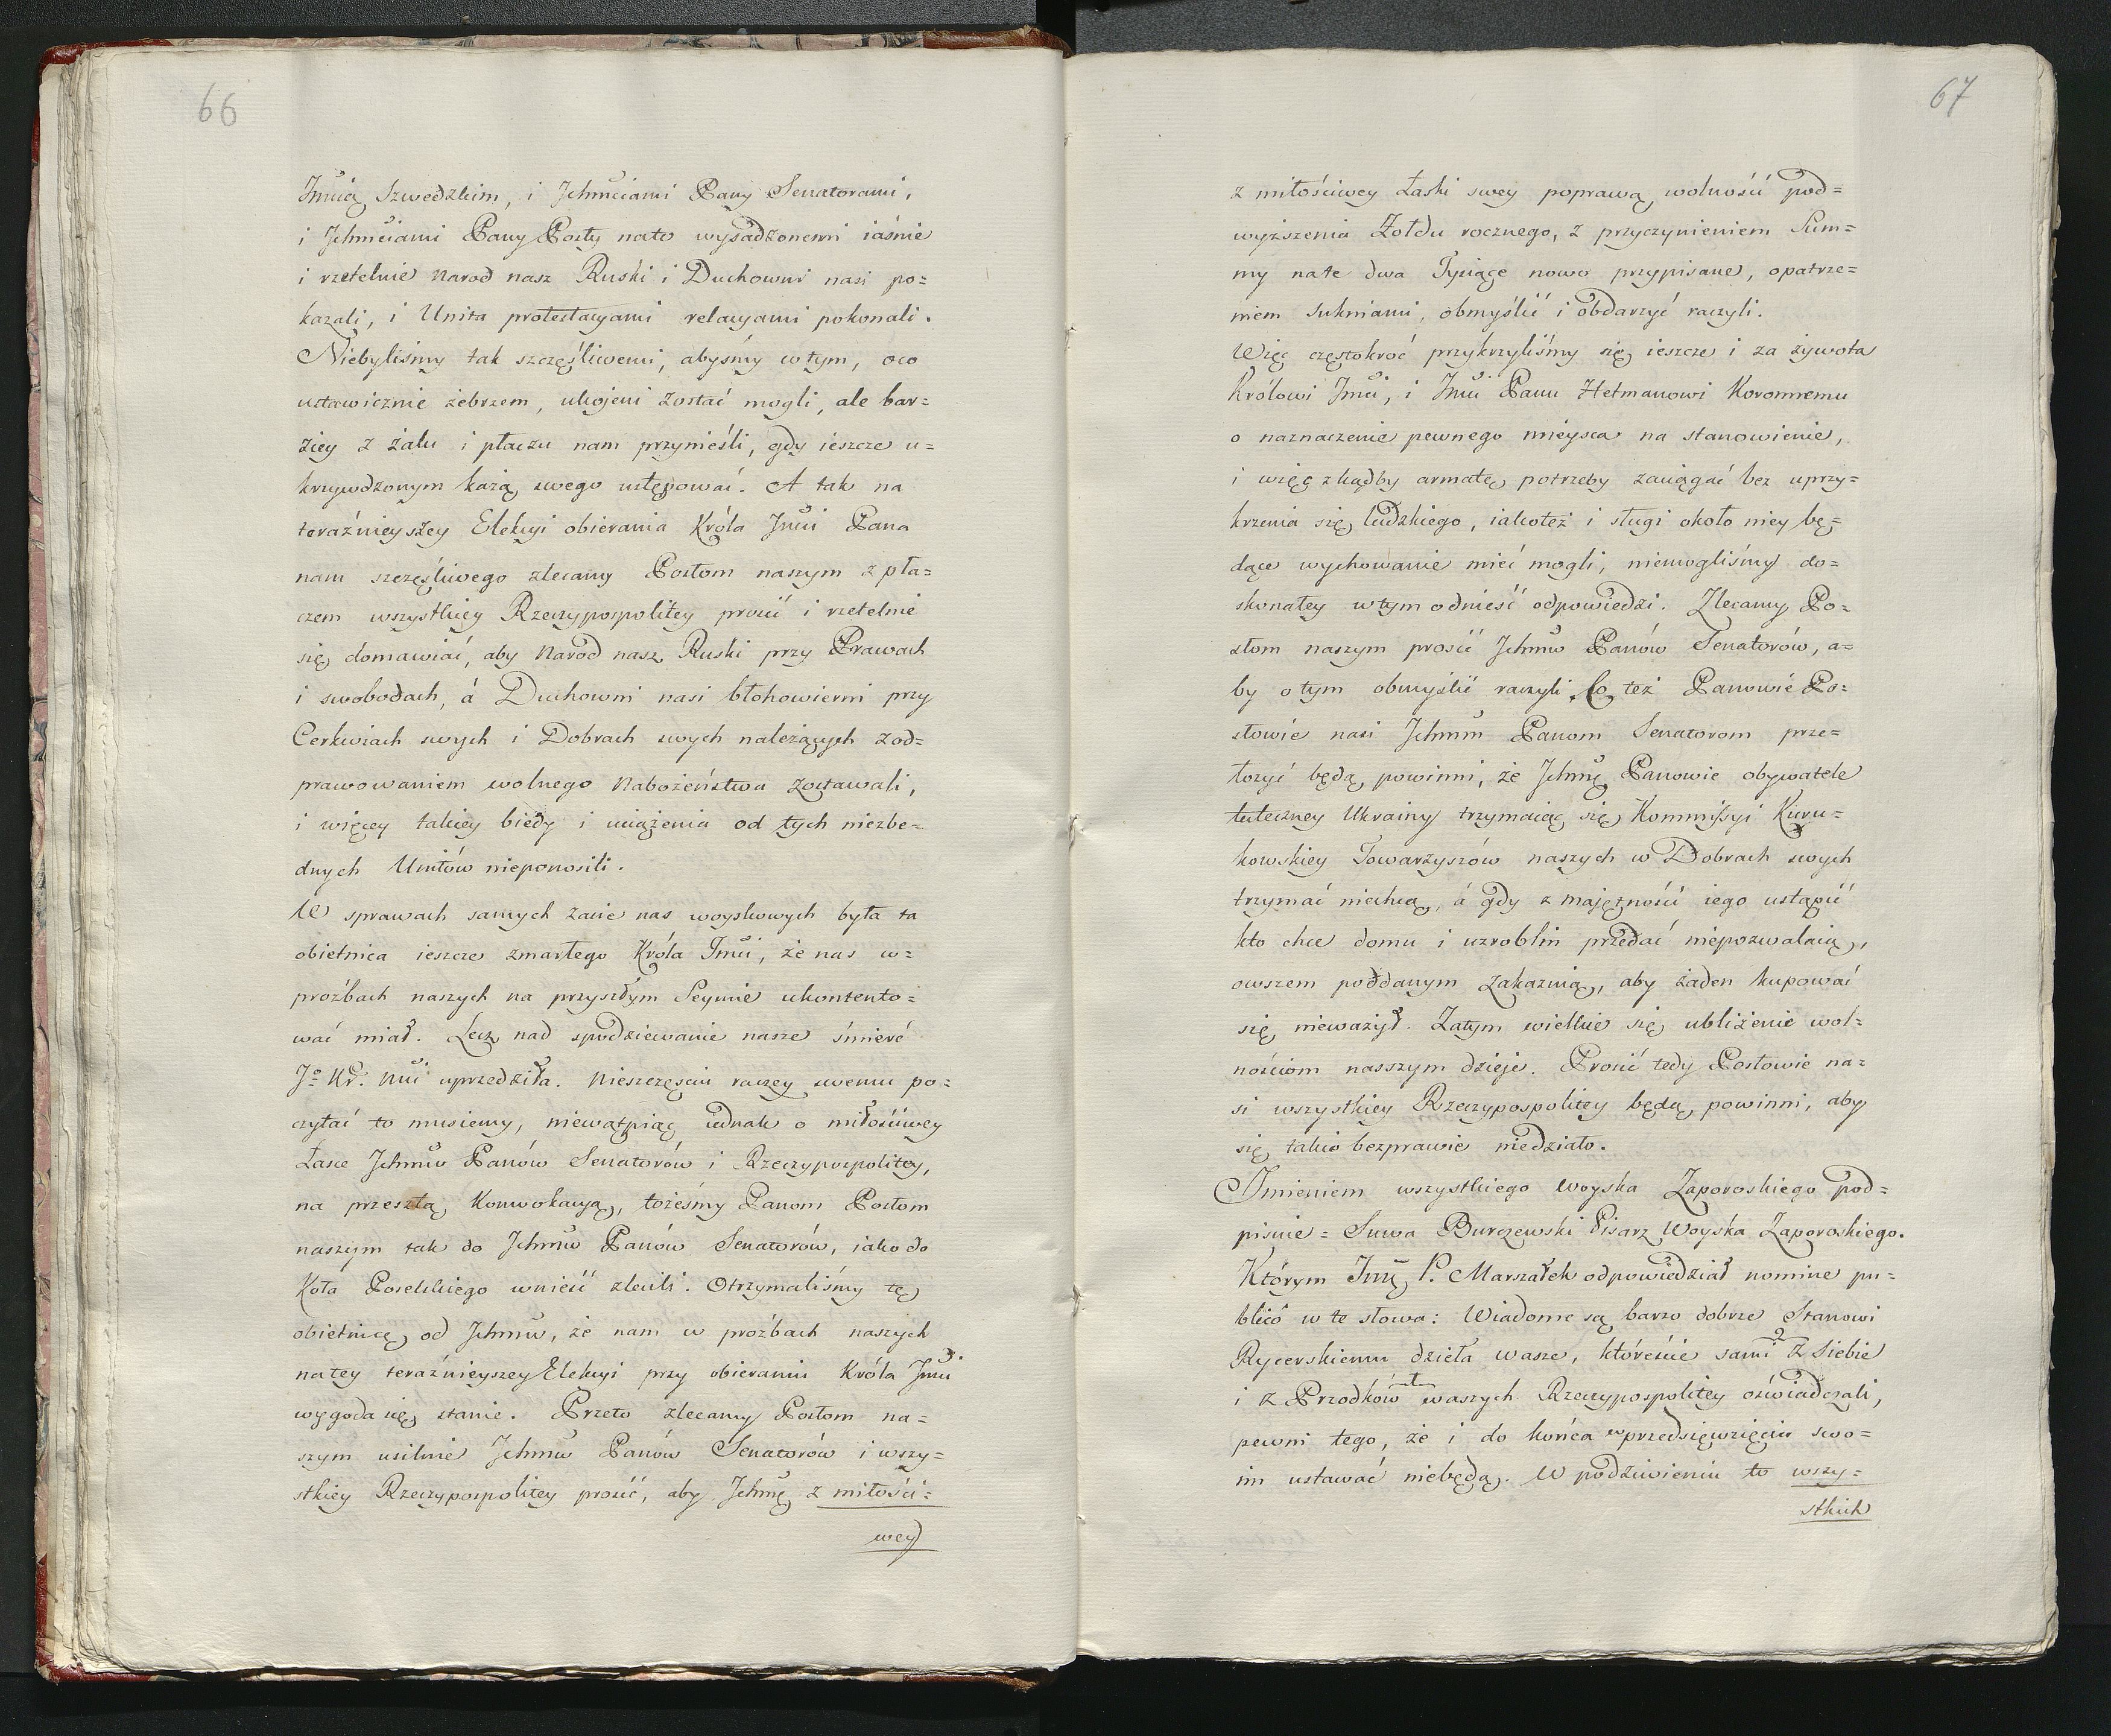 66
Jmcią Szwedzkim, i Jchmciami Pany Senatorami,
i Jchmciami Pany Posły nato wysadzonemi iaśnie
i rzetelnie Narod nasz Ruski i Duchowni nasi po=
kazali, i Unita protestacyami relacyami pokonali.
Niebyliśmy tak szczęśliwemi, abyśmy w tym, oco
ustawicznie żebrzem, ukojeni zostać mogli, ale bar=
ziey z żalu i płaczu nam przynieśli, gdy ieszcze u=
krzywdzonym każą swego ustępować. A tak na
teraźnieyszey Elekcyi obierania Króla Jmci Pana
nam szczęśliwego zlecamy Posłom naszym z pła=
czem wszystkiey Rzeczypospolitey prosić i rzetelnie
się domawiać, aby Narod nasz Ruski przy Prawach
i swobodach, á Duchowni nasi błohowierni przy
Cerkwiach swych i Dobrach swych należących zod=
prawowaniem wolnego Nabożeństwa zostawali,
i więcey takiey biedy i uciążenia od tych niezbe=
dnych Unitów nieponosili.
W sprawach samych zasie nas woyskowych była ta
obietnica ieszcze zmarłego Króla Jmci, że nas w=
proźbach naszych na przyszłym Seymie ukontento=
wać miał. Lecz nad spodziewanie nasze śmierć
Jº Kr. Mci uprzedziła. Nieszczęściu raczey swemu po=
czytać to musiemy, niewątpiąc iednak o miłościwey
Łasce Jchmw Panów Senatorów i Rzeczypospolitey,
na przeszłą Konwokacyą, tożeśmy Panom Posłom
naszym tak do Jchmw Panów Senatorów, iako do
Koła Poselskiego wnieść zlecili. Otrzymaliśmy tę
obietnicę od Jchmw, że nam w proźbach naszych
natey teraźnieyszey Elekcyi przy obieraniu Króla Jmci
wygoda się stanie. Przeto zlecamy Posłom na=
szym usilnie Jchmw Panów Senatorów i wszy=
stkiey Rzeczypospolitey prosić, aby Jchmę z miłości=
wey
67
z miłościwey Łaski swey poprawą wolności pod=
wyższenia Żołdu rocznego, z przyczynieniem Sum=
my na te dwa Tysiące nowo przypisane, opatrze=
niem sukniami, obmyślić i obdarzyć raczyli.
Więc częstokroć przykrzyliśmy się ieszcze i za żywota
Królowi Jmci, i Jmci Panu Hetmanowi Koronnemu
o naznaczenie pewnego mieysca na stanowienie,
i więc zkądby armatę potrzeby zaciągać bez uprzy=
krzenia się ludzkiego, iakoteż i sługi około niey bę=
dące wychowanie mieć mogli, niemogliśmy do=
skonałey wtym odnieść odpowiedzi. Zlecamy Po=
słom naszym prosić Jchmw Panów Senatorów, a=
by o tym obmyślić raczyli. Co też Panowie Po=
słowie nasi Jchmm Panom Senatorom prze=
łożyć będą powinni, że Jchmę Panowie obywatele
tuteczney Ukrainy trzymaiąc się Kommissyi Kuru=
kowskiey Towarzyszów naszych w Dobrach swych
trzymać niechcą, á gdy z majętności iego ustąpić
kto chce domu i uzroblin przedać niepozwalaią,
owszem poddanym zakazuią, aby żaden kupować
się nieważył. Zatym wielkie się ubliżenie wol=
nościom nasszym dzieje. Prosić tedy Posłowie na=
si wszystkiey Rzeczypospolitey będą powinni, aby
się takie bezprawie niedziało.
Jmieniem wszystkiego Woyska Zaporoskiego pod=
pisuie = Suwa Burczewski Pisarz Woyska Zaporoskiego.
Którym Jmę P. Marszałek odpowiedział nomine pu=
blico w te słowa: Wiadome są barzo dobrze Stanowi
Rycerskiemu dzieła wasze, któreście sami z siebie
i z Przodków waszych Rzeczypospolitey oświadczali,
pewni tego, że i do końca w przedsięwzięciu swo=
im ustawać niebędą. W podziwieniu to wszy=
stkich